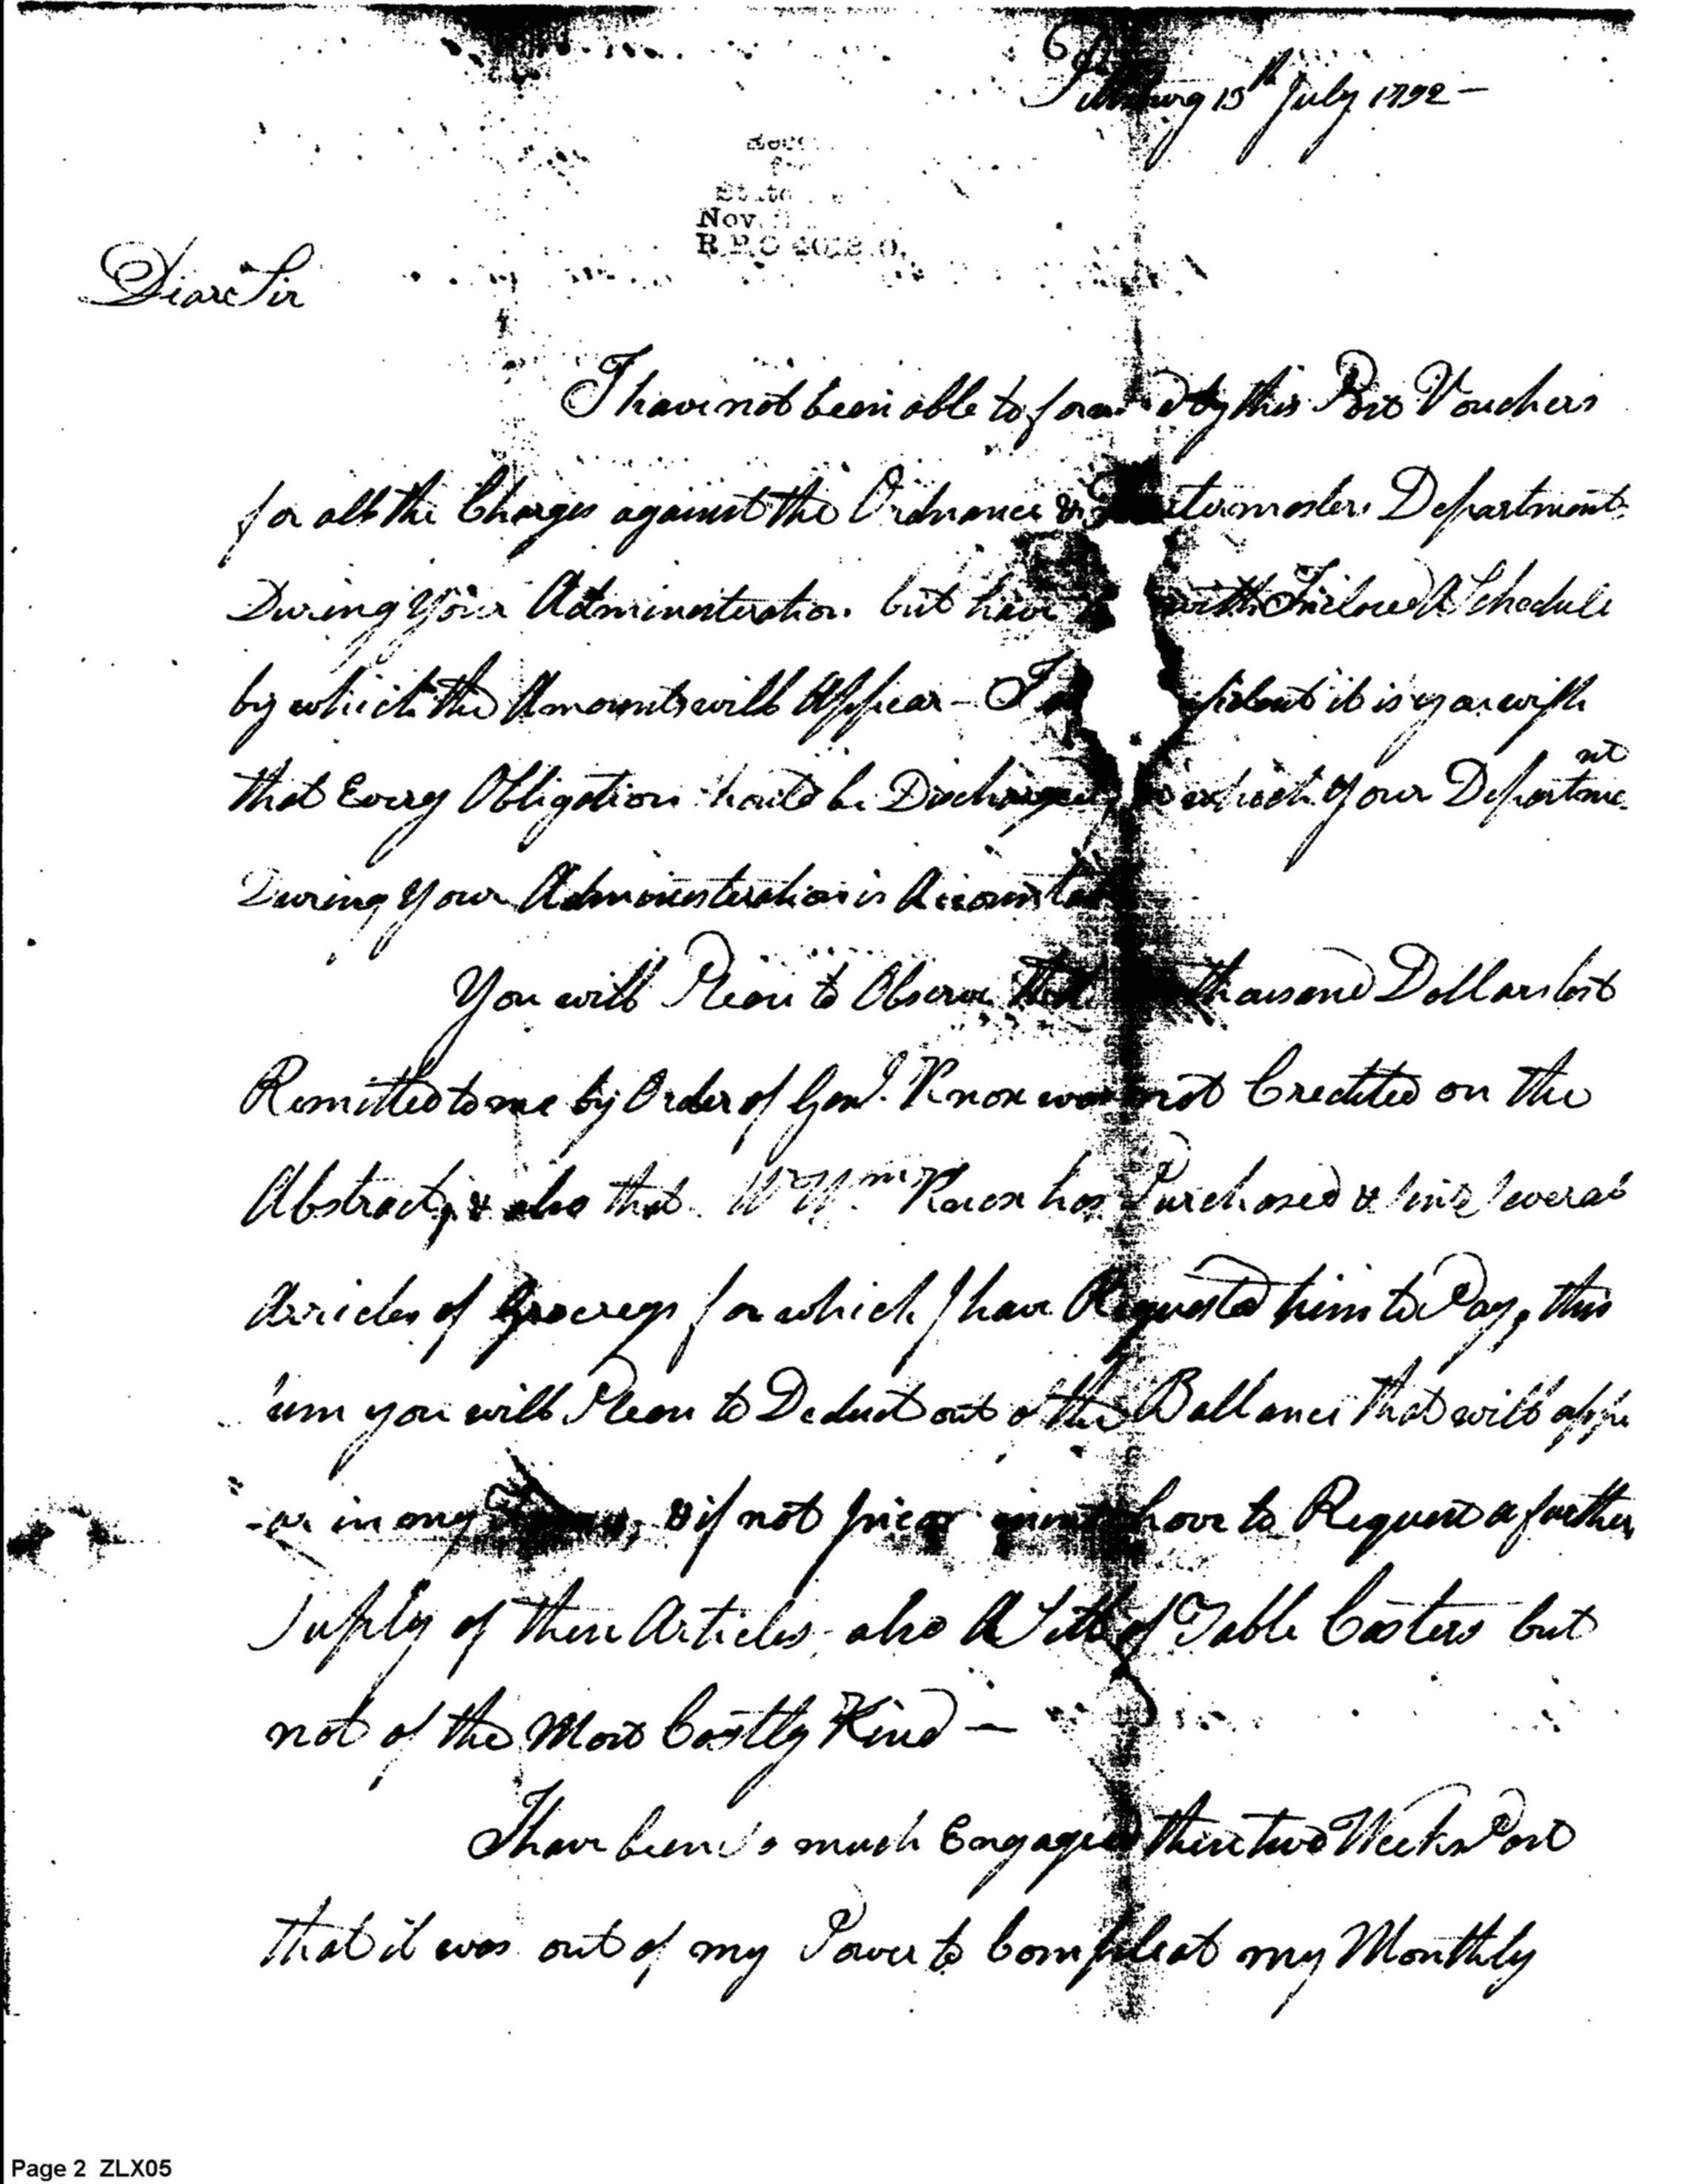 6
Pittsburg 15th July 1792 —
State
Nov.
R.P.O
Dear Sir
I have not been able to forward by this Post Vouchers
for all the Charges against the Ordnance & Quartermasters Department
During Your Administeration but have with Inclosed A Schedule
by which the Amounts will Appear — I it is your wish
that Every Obligation should be Discharged which Your Departme nt
During Your Administeration is Accountable
You will Please to Observe that thousand Dollars last
Remitted to me by Order of Genl. Knox was not Credited on the
Abstract, & also that Mr Wm Knox has Purchased & sent several
Articles of Grocreys for which I have Requested him to Pay, this
sum you will Please to Deduct out of the Ballance that will appe
-ar in my & if not have to Request a further
Supply of these Articles, also A Sett of Table Casters but
not of the Most Costly Kind —
I have been so much Engaged these two Weeks Past
that it was out of my Power to Compleat my Monthly
Page 2 ZLX05